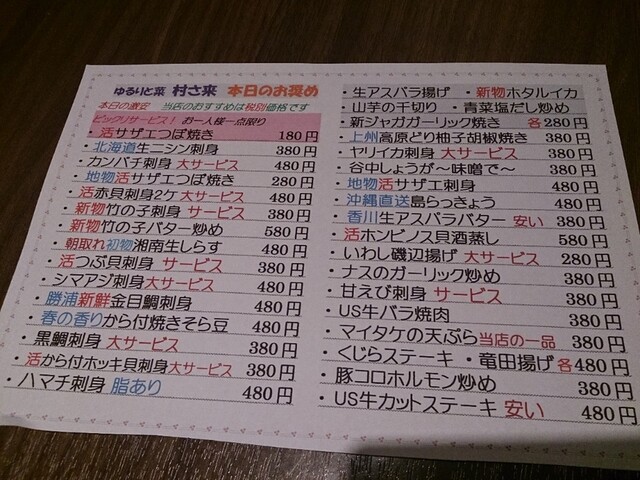 ゆるりと菜 村さ来 本日のお奨め
本日の激安 当店のおすすめは税別価格です
ビックリサービス！ お一人様一点限り
・活サザエつぼ焼き 180円
・北海道生ニシン刺身 380円
・カンパチ刺身 大サービス 480円
・地物活サザエつぼ焼き 280円
・活赤貝刺身2ケ 大サービス 480円
・新物竹の子刺身 サービス 380円
・新物竹の子バター炒め 580円
・朝取れ初物湘南生しらす 480円
・活つぶ貝刺身 サービス 380円
・シマアジ刺身 大サービス 480円
・勝浦新鮮金目鯛刺身 480円
・春の香りから付焼きそら豆 480円
・黒鯛刺身 大サービス 380円
・活から付ホッキ貝刺身大サービス 380円
・ハマチ刺身 脂あり 480円
・生アスパラ揚げ ・新物ホタルイカ
・山芋の千切り ・青菜塩だし炒め
・新ジャガガーリック焼き 各280円
・上州高原どり柚子胡椒焼き 380円
・ヤリイカ刺身 大サービス 380円
・谷中しょうが～味噌で～ 380円
・地物活サザエ刺身 480円
・沖縄直送島らっきょう 480円
・香川生アスパラバター 安い 380円
・活ホンビノス貝酒蒸し 580円
・いわし磯辺揚げ 大サービス 280円
・ナスのガーリック炒め 380円
・甘えび刺身 サービス 380円
・US牛バラ焼肉 380円
・マイタケの天ぷら当店の一品 380円
・くじらステーキ ・竜田揚げ 各480円
・豚コロホルモン炒め 380円
・US牛カットステーキ 安い 480円